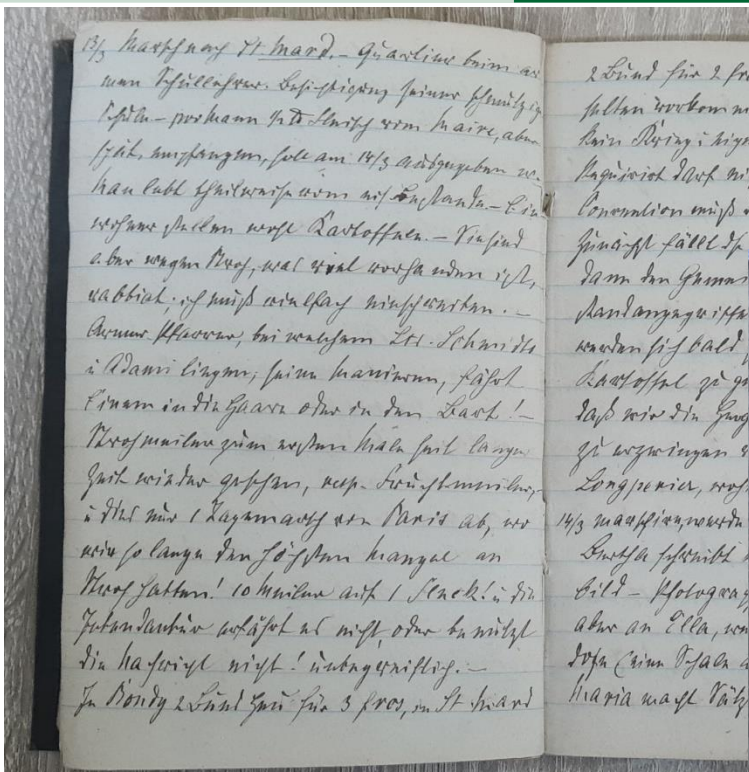 13/3 Marsch nach St Mard. – Quartier beim ar
men Schullehrer. Besichtigung seiner schmutzige
Schule – pro Mann ½ ℔ Fleisch vom Maire, aber
spät, empfangen, soll am 14/3 ausgegeben we
Man lebt theilweise vom eis Bestande. – Ein
wohner stellen wohl Kartoffeln. – Sie sind
aber wegen Stroh, was viel vorhanden ist,
rabbiat; ich muß vielfach einschreiten. –
Armer Pfarrer, bei welchem Lts. Schmidts
u Adami liegen; seine Manieren, fährt
Einem in die Haare oder in den Bart! –
Strohmeiler zum ersten Male seit langer
Zeit wieder gesehen, resp. Fruchtmeiler,
u dies nur 1 Tagemarsch von Paris ab, wo
wir so lange den höchsten Mangel an
Stroh hatten! 10 Meiler auf 1 Fleck! u die
Intendantur erfährt es nicht, oder benützt
die Nachricht nicht! unbegreiflich. –
In Bondy 2 Bund Heu für 3 frcs, in St Mard
2 Bund für 2 fr
selten vorkom
kein Krieg i
Requirirt darf ni
Convention muß
Zunächst fällt
dann den Gemei
standangegriffe
werden sich bald
Kartoffel zu g
daß wir die
zu erzwingen
Longperier, woh
14/3 marschiren werde
Bertha schreibt
bild – Photograp
aber an Ella, we
dose (eine Schale
Maria macht Sätz